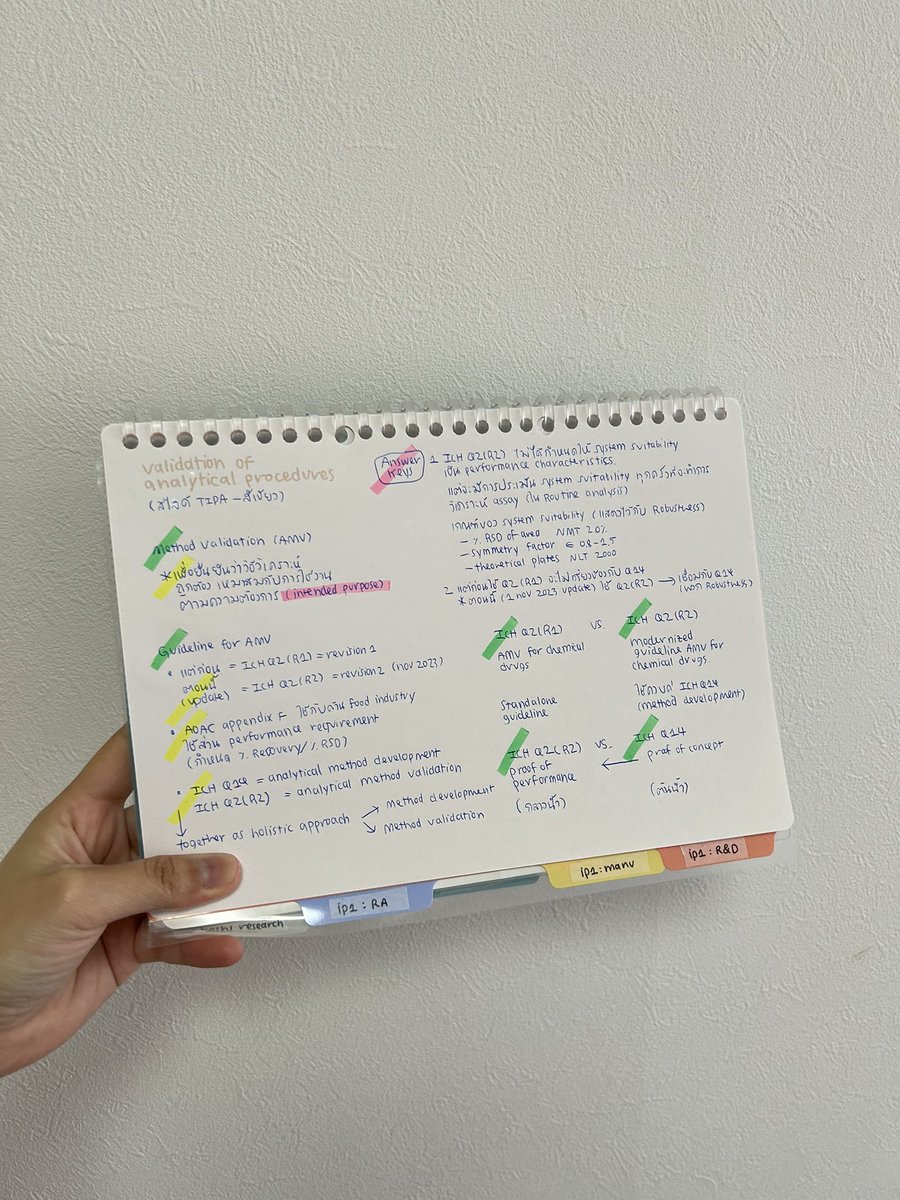 validation of
analytical procedures
(สไลด์ TIPA - สีเขียว)
Method Validation (AMV)
* เพื่อยืนยันว่าวิธีวิเคราะห์
ถูกต้อง เหมาะสมกับการใช้งาน
ตามความต้องการ (intended purpose)
Guideline for AMV
• แต่ก่อน = ICH Q2(R1) = revision 1
ตอนนี้ (update) = ICH Q2(R2) = revision 2 (nov 2023)
• AOAC appendix F ใช้กับด้าน food industry
ใช้ส่วน performance requirement
(กำหนด % Recovery / % RSD)
• ICH Q14 = analytical method development
ICH Q2(R2) = analytical method validation
↓
together as holistic approach
↗ method development
↘ method validation
Answer keys
1 ICH Q2(R2) ไม่ได้กำหนดให้ system suitability
เป็น performance characteristics.
แต่จะมีการประเมิน system suitability ทุกครั้งก่อนทำการ
วิเคราะห์ assay (ใน Routine analysis)
เกณฑ์ของ system suitability (แสดงไว้กับ Robustness)
- % RSD of area NMT 2.0%
- symmetry factor ∈ 0.8-1.5
- theoretical plates NLT 2000
2 แต่ก่อนใช้ Q2(R1) จะไม่เกี่ยวข้องกับ Q14
* ตอนนี้ (1 nov 2023 update) ใช้ Q2(R2) → เชื่อมกับ Q14
Robustness)
ICH Q2(R1) vs. ICH Q2(R2)
AMV for chemical
drugs
modernized
guideline AMV for
chemical drugs.
Standalone
guideline
ใช้ควบคู่ ICH Q14
(method development)
ICH Q2(R2) vs. ICH Q14
proof of
performance
← proof of concept
(กลางน้ำ)
(ต้นน้ำ)
research
ip1 : RA
ip1 : manu
ip1 : R&D